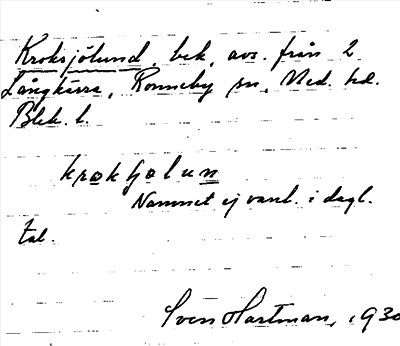 Kroksjölund, bek. avs. från 2
Långkärra, Ronneby sn, Med. hd.
Blek. l.
krokʃølun
Namnet ej vanl. i dagl.
tal.
Sven Hartman, 1930